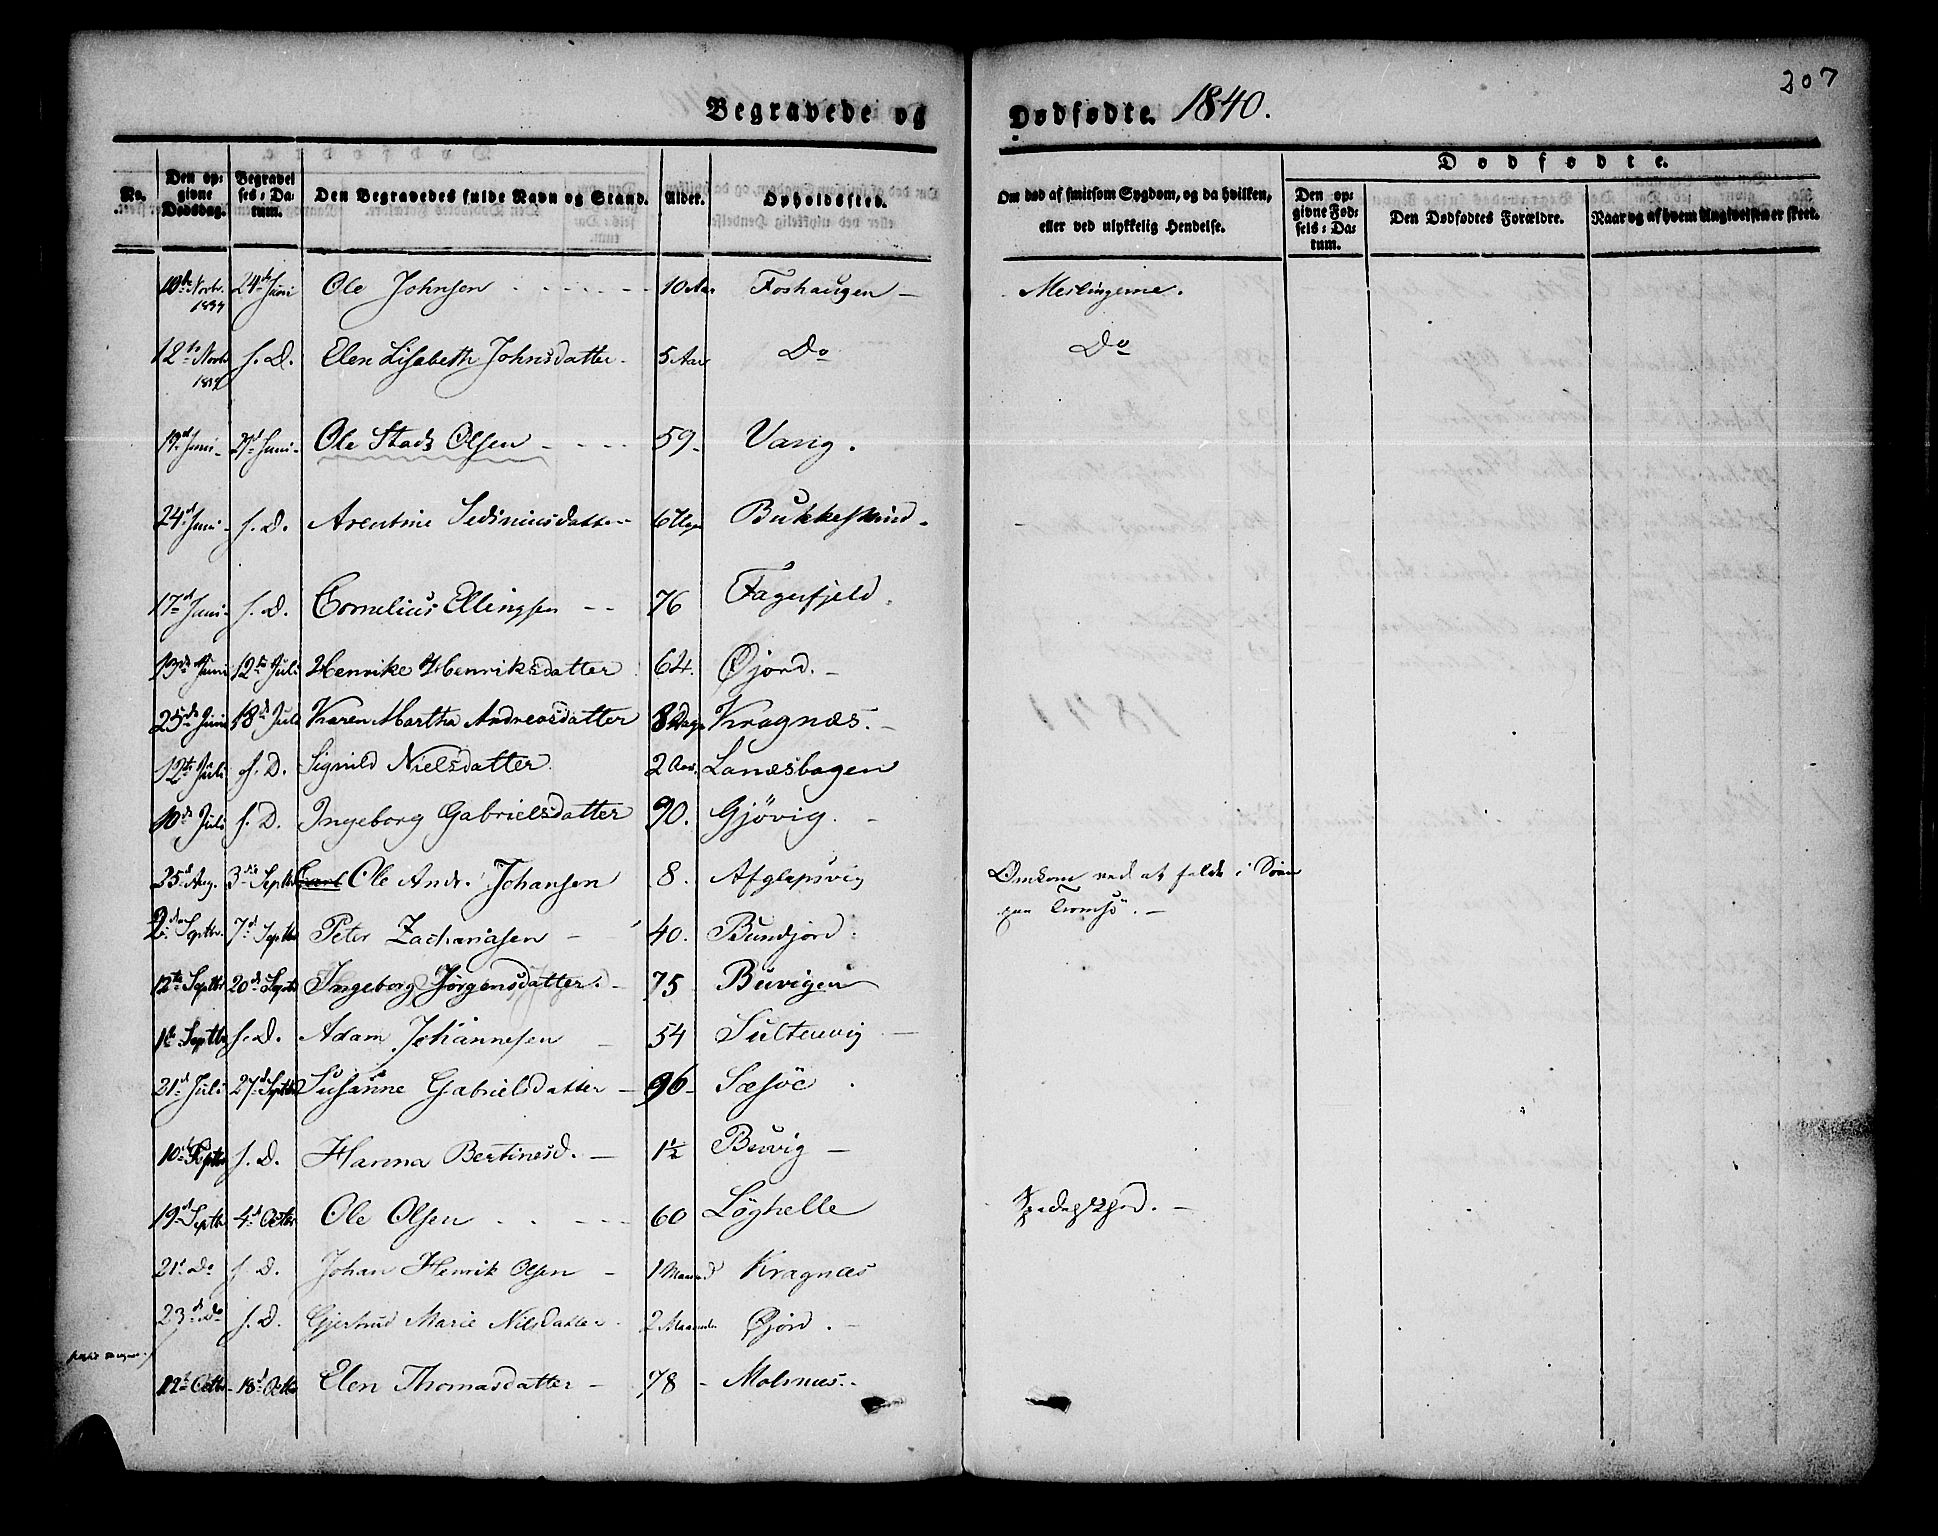 207
Begravede og Dødfødte. 1840.
Dødfødte.
No. Den opgivne Dødsdag. Begravelses-Datum. Den Begravedes fulde Navn og Stand. Alder. Opholdssted. Om død af smitsom Sygdom, og da hvilken, eller ved ulykkelig Hendelse. Den opgivne Fødsels-Datum. Den Dødfødtes Forældre. Naar og af hvem Angivelsen er skeet.
10de Novbr. 1839 24de Juni Ole Johnsen 10 Aar Foshaugen Meslingerne.
12te Novbr 1839 s. D. Elen Lisabeth Johnsdatter 5 Aar Do Do
Juni Juni Ole Stads Olsen 59 Varig.
24d Juni s. D. Arentine Sediniusdatter 6 Uger Bukkeskind.
17d Juni s. D. Cornelius Ellingsen 76 Fagerfjeld.
13de Juni 12te Juli Henrike Henriksdatter 64. Øjord.
25de Juni 18de Juli Karen Martha Andreasdatter 8 Dage Kragnæs.
12te Juli s. D. Signild Nielsdatter 2 Aar. Lanæsbagen
10de Juli s. D. Ingeborg Gabrielsdatter 90. Gjövig.
25d Aug. 3die Septbr Carl Ole Andr. Johansen 8. Afglapsvig Omkom ved at falde i Søen
paa Tromsö.
2den Septbr. 7d Septbr Peter Zachariasen 40. Bundjord.
12te Septbr 20d Septbr Ingeborg Jörgensdatter. 75 Buvigen
1te Septbr s. D. Adam Johannesen 54 Sultenvig
21d Juli 27d Septbr Susanne Gabrielsdatter 96 Sæsöe
10d Septbr s. D. Hanna Bertinesd. 1½ Buvig
19d Septbr 4d Octbr Ole Olsen 60 Löghelle Spedalskhed.
21d Do s. D. Johan Henrik Olsen 1 Maaned Kragnæs
23d Do s. D. Gjertrud Marie Nilsdatter 2 Maaneder Øjord.
12te Octbr 18d Octbr Elen Thomasdatter 78 Malsnæs.